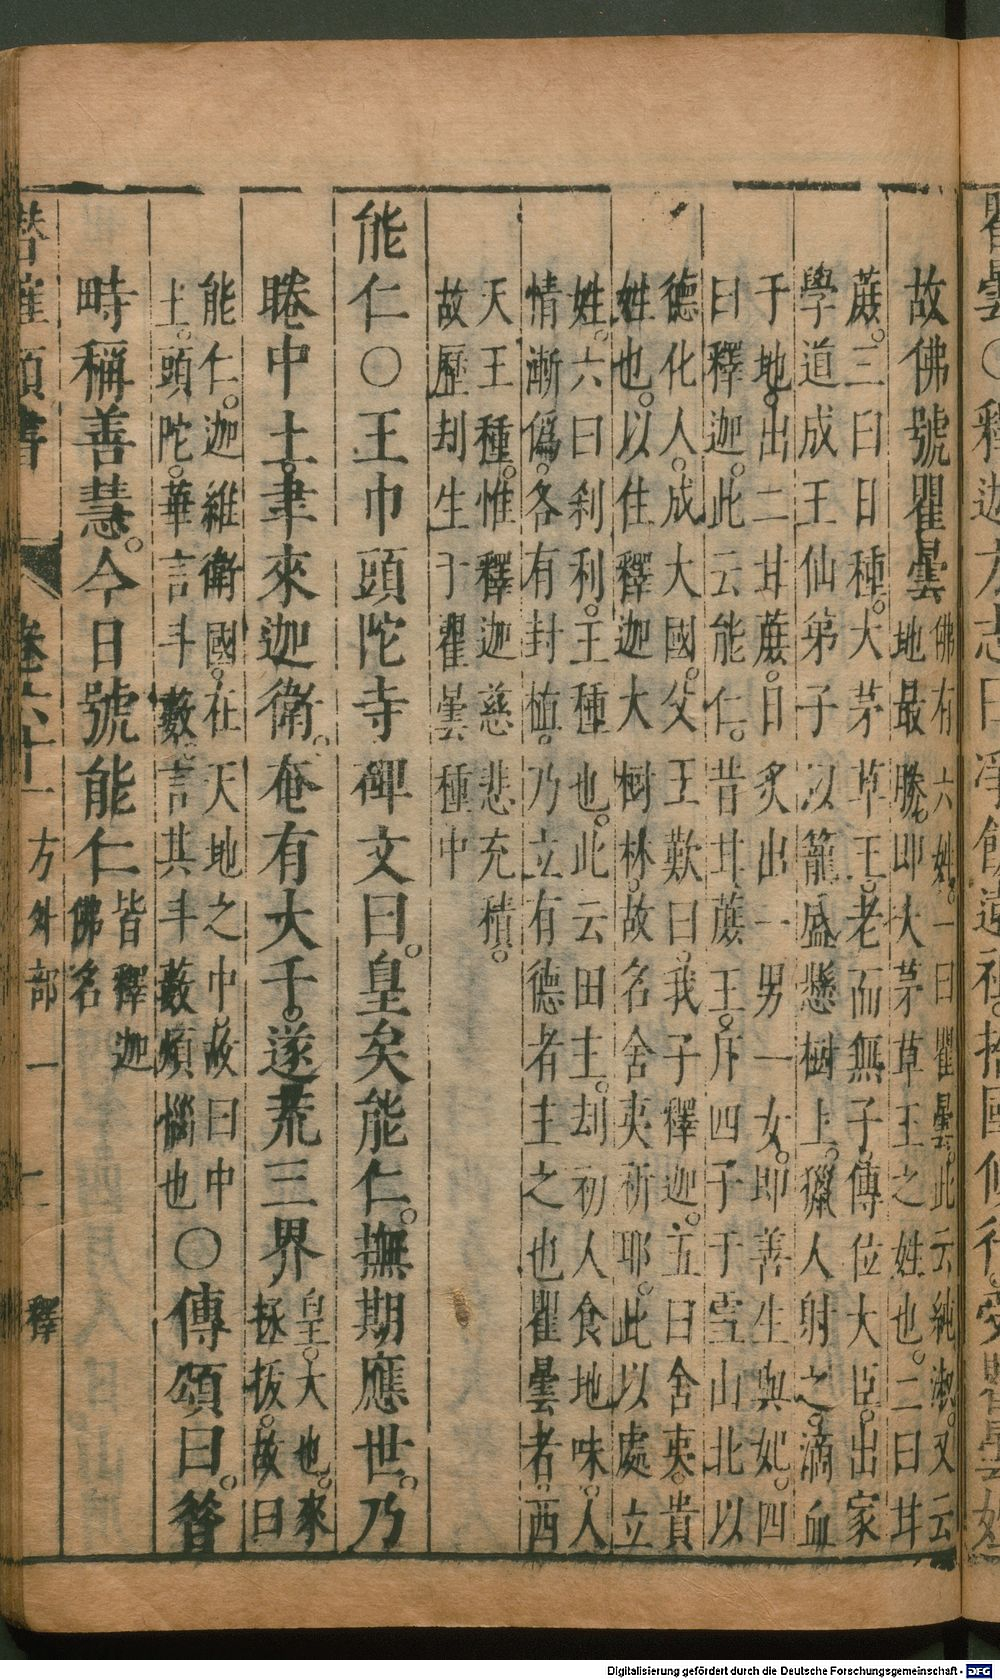 瞿曇〇釋迦方志曰淨飯遠祖。捨國修行。受瞿曇姓
故佛號瞿曇
佛有六姓。一曰瞿曇。此云純淑。又云
地最勝。即大茅草王之姓也。二曰甘
蔗。三曰日種。大茅草王。老而無子。傳位大臣。出家
學道成王仙弟子以籠盛懸樹上。獵人射之。滴血
于地。出二甘蔗。日炙出一男一女。即善生與妃。四
曰釋迦。此云能仁。昔甘蔗王。斥四子于雪山北以
德化人。成大國。父王歎曰。我子釋迦。五曰舍夷。貴
姓也。以住釋迦大樹林。故名舍夷祈耶。此以處立
姓。六曰刹利。王種也。此云田主。劫初人食地味。人
情漸僞。各有封植。乃立有德者主之也瞿曇者。西
天王種。惟釋迦慈悲充積。
故歷刧生于瞿曇種中
能仁〇王巾頭陀寺碑文曰。皇矣能仁。撫期應世。乃
睠中土。聿來迦衛。奄有大千。遂荒三界
皇。大也。來
拯拔。故曰
能仁。迦維衛國。在天地之中。故曰中
土。頭陀。華言斗藪。言其斗藪煩惱也
〇傳頌曰。昝
時稱善慧。今日號能仁
皆釋迦
佛名
潛確類書 卷六十一 方外部一 釋
Digitalisierung gefördert durch die Deutsche Forschungsgemeinschaft - DFG